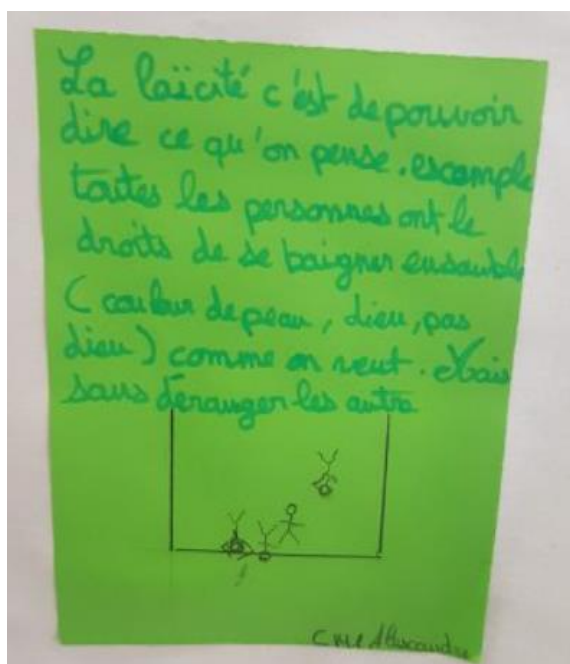 La laïcité c'est de pouvoir
dire ce qu'on pense. escemple
toutes les personnes ont le
droits de se baigner ensemble
(couleur de peau, dieu, pas
dieu) comme on veut. Mais
sans déranger les autre